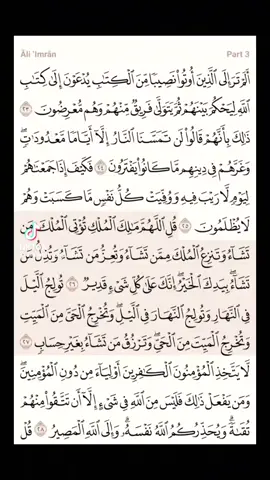 Āli ʿImrān
Part 3
أَلَمْ تَرَ إِلَى ٱلَّذِينَ أُوتُوا۟ نَصِيبًا مِّنَ ٱلْكِتَٰبِ يُدْعَوْنَ إِلَىٰ كِتَٰبِ
ٱللَّهِ لِيَحْكُمَ بَيْنَهُمْ ثُمَّ يَتَوَلَّىٰ فَرِيقٌ مِّنْهُمْ وَهُم مُّعْرِضُونَ ٢٣
ذَٰلِكَ بِأَنَّهُمْ قَالُوا۟ لَن تَمَسَّنَا ٱلنَّارُ إِلَّآ أَيَّامًا مَّعْدُودَٰتٍ ۖ
وَغَرَّهُمْ فِى دِينِهِم مَّا كَانُوا۟ يَفْتَرُونَ ٢٤ فَكَيْفَ إِذَا جَمَعْنَٰهُمْ
لِيَوْمٍ لَّا رَيْبَ فِيهِ وَوُفِّيَتْ كُلُّ نَفْسٍ مَّا كَسَبَتْ وَهُمْ
لَا يُظْلَمُونَ ٢٥ قُلِ ٱللَّهُمَّ مَٰلِكَ ٱلْمُلْكِ تُؤْتِى ٱلْمُلْكَ مَن
تَشَآءُ وَتَنزِعُ ٱلْمُلْكَ مِمَّن تَشَآءُ وَتُعِزُّ مَن تَشَآءُ وَتُذِلُّ مَن
تَشَآءُ ۖ بِيَدِكَ ٱلْخَيْرُ ۖ إِنَّكَ عَلَىٰ كُلِّ شَىْءٍ قَدِيرٌ ٢٦ تُولِجُ ٱلَّيْلَ
فِى ٱلنَّهَارِ وَتُولِجُ ٱلنَّهَارَ فِى ٱلَّيْلِ ۖ وَتُخْرِجُ ٱلْحَىَّ مِنَ ٱلْمَيِّتِ
وَتُخْرِجُ ٱلْمَيِّتَ مِنَ ٱلْحَىِّ ۖ وَتَرْزُقُ مَن تَشَآءُ بِغَيْرِ حِسَابٍ ٢٧
لَّا يَتَّخِذِ ٱلْمُؤْمِنُونَ ٱلْكَٰفِرِينَ أَوْلِيَآءَ مِن دُونِ ٱلْمُؤْمِنِينَ ۖ
وَمَن يَفْعَلْ ذَٰلِكَ فَلَيْسَ مِنَ ٱللَّهِ فِى شَىْءٍ إِلَّآ أَن تَتَّقُوا۟ مِنْهُمْ
تُقَىٰةً ۗ وَيُحَذِّرُكُمُ ٱللَّهُ نَفْسَهُۥ ۗ وَإِلَى ٱللَّهِ ٱلْمَصِيرُ ٢٨ قُلْ